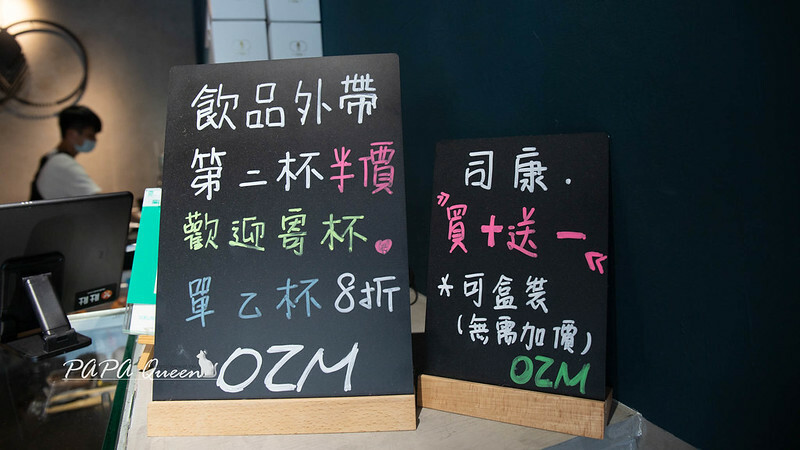 飲品外帶
第二杯半價
歡迎寄杯
單乙杯 8折
OZM
司康.
"買十送一"
*可盒裝
(無需加價)
OZM
PAPA Queen